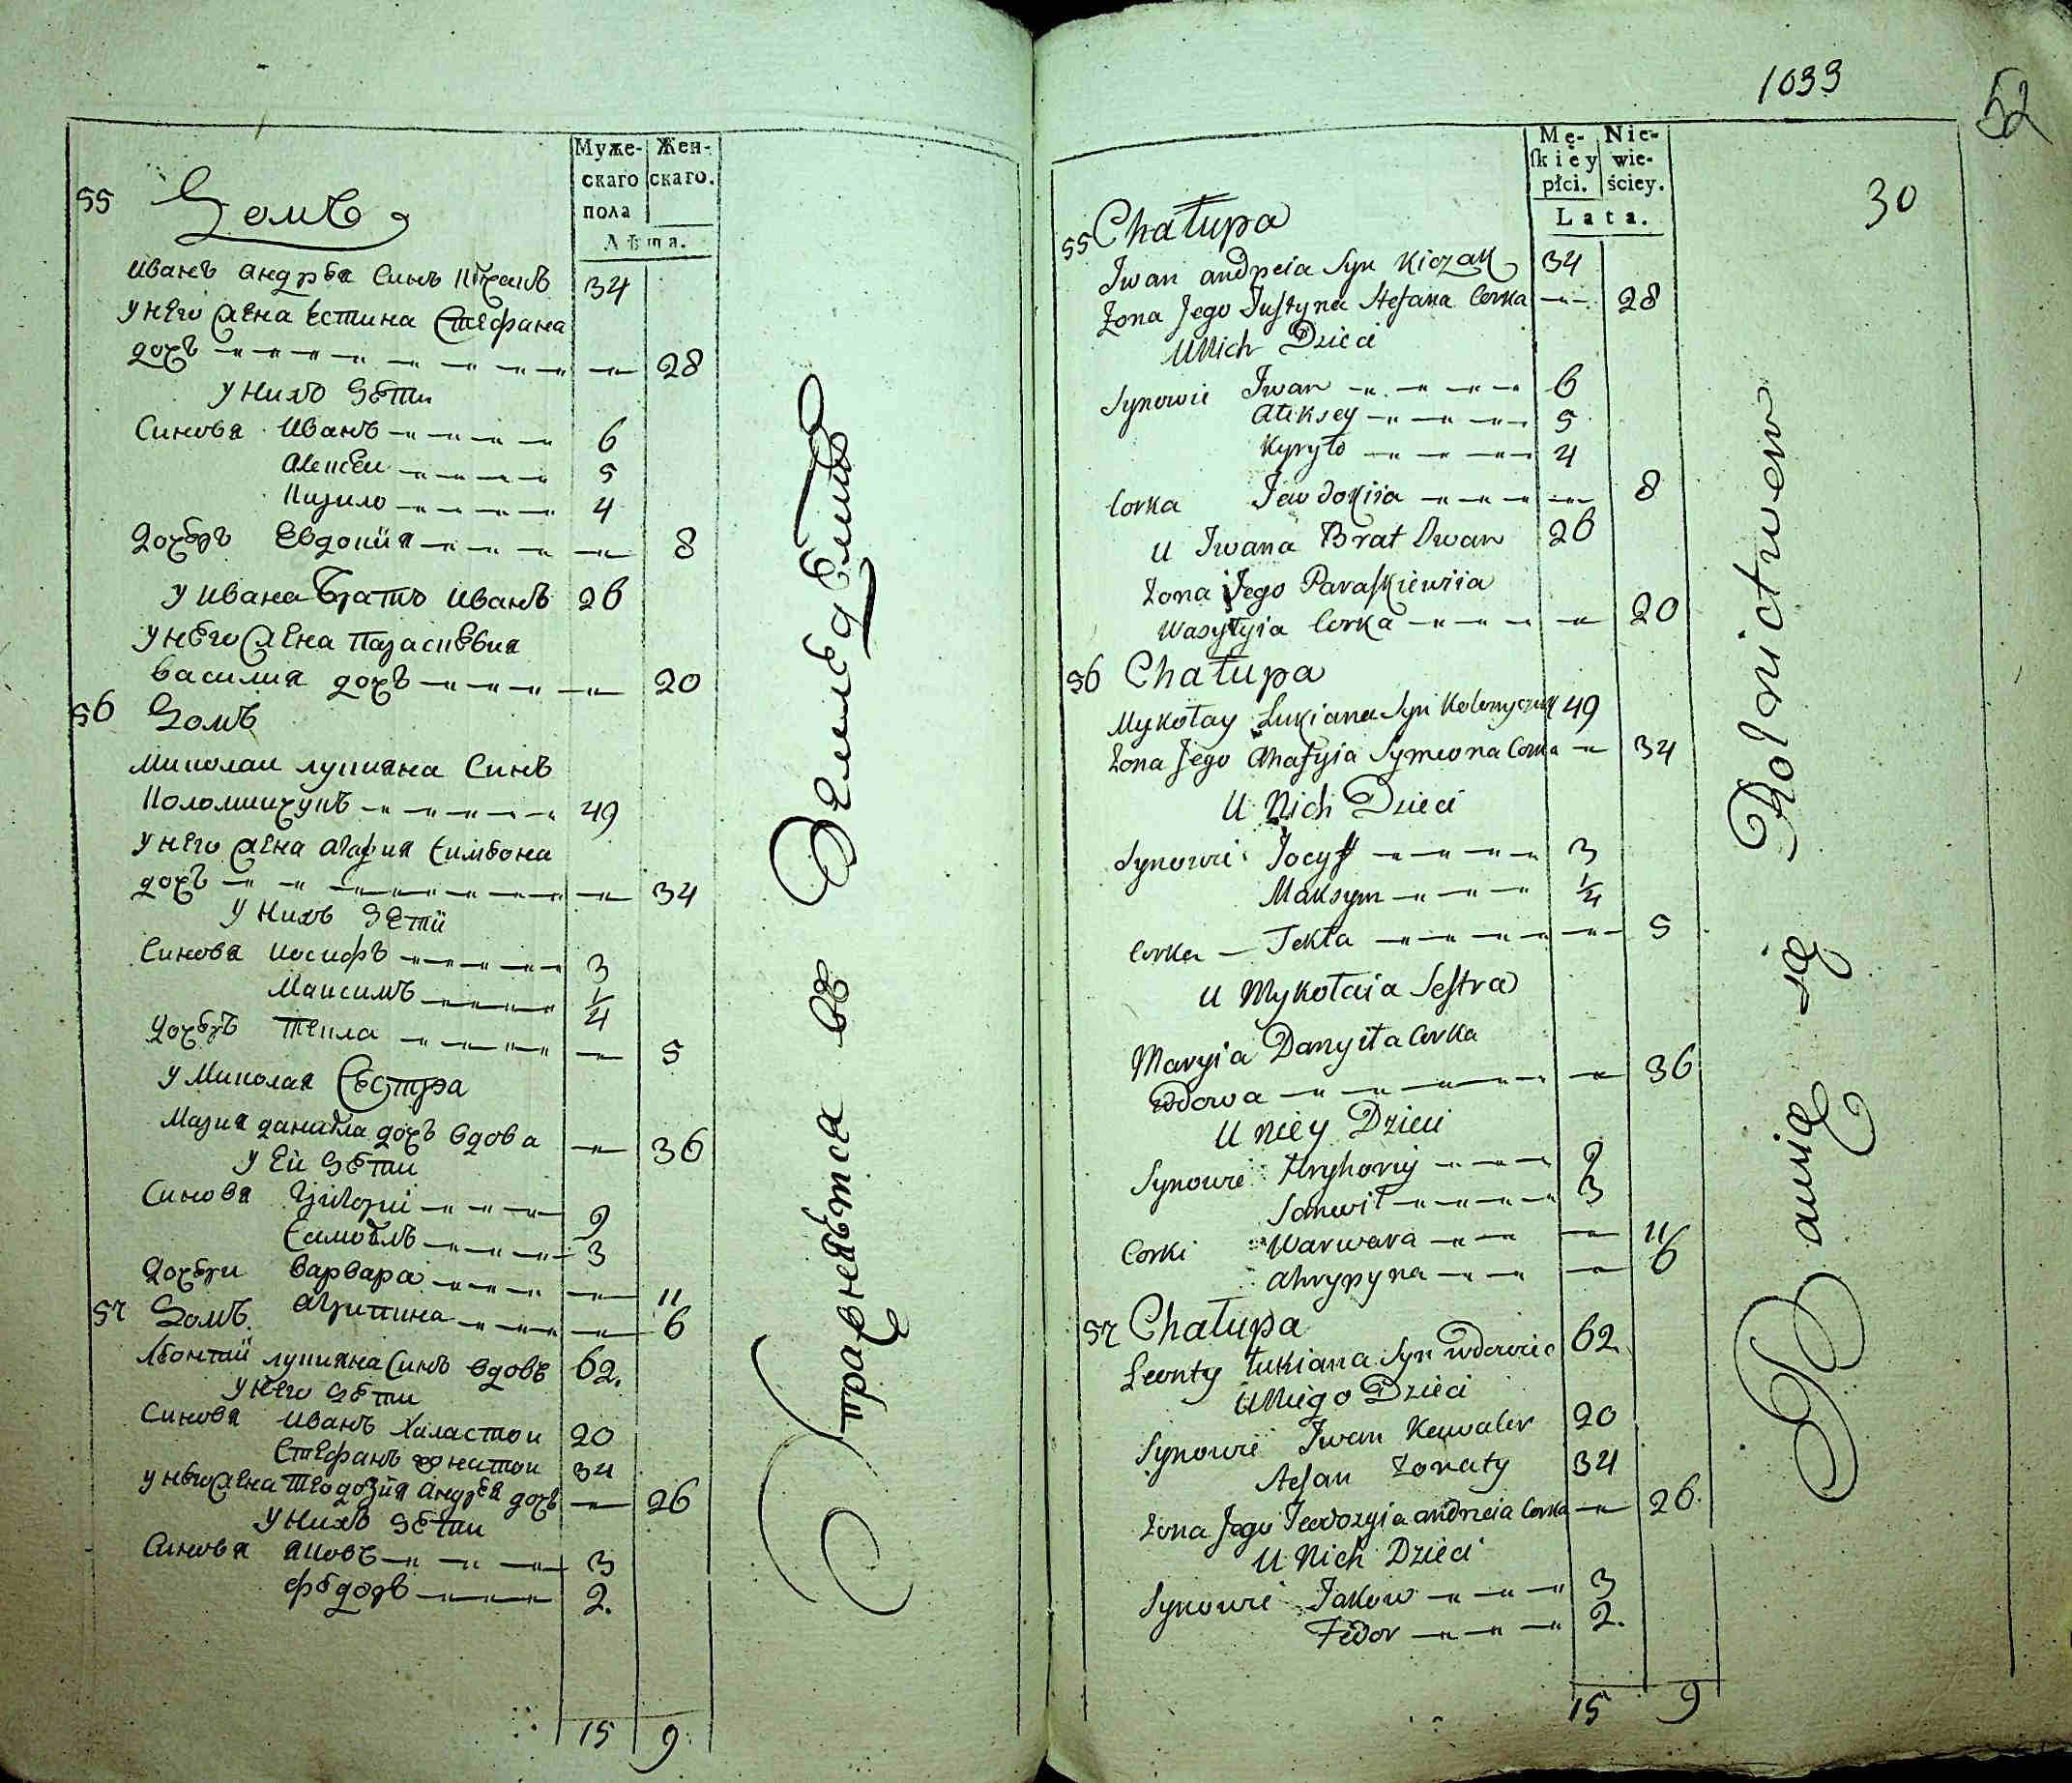 Муже-
скаго
пола
Жен-
скаго.
Лѣта.
55 Домъ
Иванъ Андрѣя Синъ Кѣчакъ 34
У него жена Естина Стефана
дочъ 28
У нихъ Дѣти
Синовя Иванъ 6
Алексеи 5
Кирило 4
Дочѣръ Евдокия 8
У Ивана братъ Иванъ 26
У нѣго жена Параскѣвия
Василия дочъ 20
56 Домъ
Миколаи Лукияна Синъ
Коломийчукъ 49
У него жена Агафия Симѣона
дочъ 34
У нихъ Дети
Синовя Иосифъ 3
Максимъ 1/4
Дочѣръ Текла 5
У Миколая Сѣстра
Мария Данила дочъ вдова 36
У Ей Дѣти
Синовя Григори 9
Самоилъ 3
Дочѣри Варвара 11
Агрипина 6
57 Домъ.
Лѣонтий Лукияна Синъ вдовѣ 62.
У него Дѣти
Синовя Иванъ Халастои 20
Стефанъ жнатои 34
У нѣго жена Теодозия Андрѣя дочъ 26
У нихъ Дѣти
Синовя Яковъ 3
Фѣдоръ 2.
15 9
Упражняются въ Земледѣлии
1033
52
30
Mę-
skiey
płci.
Nie-
wie-
ściey.
Lata.
55 Chałupa
Iwan Andreia Syn Kiczak 34
Zona Jego Justyna Stefana Corka 28
U Nich Dzieci
Synowie Iwan 6
Aliksey 5
Kyryło 4
Corka Jewdokiia 8
U Iwana Brat Iwan 26
Zona Jego Paraskiewiia
Wasylyia Corka 20
56 Chałupa
Mykołay Łukiana Syn Kolomyczuk 49
Zona Jego Ahafyia Symeona Corka 34
U Nich Dzieci
Synowie Jocyf 3
Maksym 1/4
Corka Tekla 5
U Mykołaia Sestra
Maryia Danyiła Corka
Wdowa 36
U Niey Dzieci
Synowie Hryhoriy 9
Samuił 3
Corki Warwara 11
Ahrypyna 6
57 Chałupa
Leonty Łukiana Syn Wdowiec 62.
U Niego Dzieci
Synowie Iwan Kawaler 20
Stefan Zonaty 34
Zona Jego Teodozyia Andreia Corka 26.
U Nich Dzieci
Synowie Jakow 3
Fedor 2.
15 9
Bawią się Rolnictwem